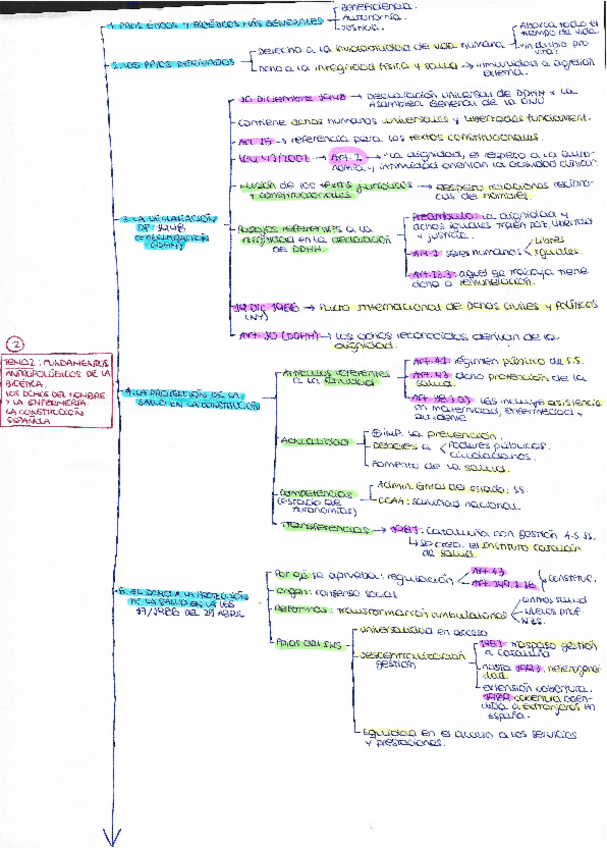 1. PPIOS ÉTICOS Y BIOÉTICOS MÁS GENERALES
Beneficiencia.
Autonomía.
Justicia.
2. LOS PPIOS DERIVADOS
Derecho a la inviolabilidad de vida humana
Abarca todo el
tiempo de vida.
in dubio pro
vita.
Dcho a la integridad física y salud → inmunidad a agresión
externa.
3. LA DECLARACIÓN
DE 1948
10 Diciembre 1948 → Declaración Universal de DDHH x la
Asamblea General de la ONU
Contiene dchos humanos universales y libertades fundament.
Art. 25 → referencia para los textos constitucionales.
Ley 41/2002 → Art. 2 → "La dignidad, el respeto a la auto-
nomía y intimidad orientan la actividad clínica"
de los textos jurídicos
y constitucionales
→ respeto relaciones recípro-
cas de hombres.
referentes a la
dignidad en la declaración
de DDHH.
Preámbulo: la dignidad y
dchos iguales traen paz, libertad
y justicia.
Art. 1: seres humanos
libres
iguales.
Art. 23.3: aquel q trabaja tiene
dcho a remuneración.
(NY)
→ Pacto Internacional de Dchos Civiles y Políticos
(DDHH) → Los dchos reconocidos derivan de la
dignidad.
2
TEMA 2: FUNDAMENTOS
ANTROPOLÓGICOS DE LA
BIOÉTICA.
LOS DCHOS DEL HOMBRE
Y LA ENFERMERÍA.
LA CONSTITUCIÓN
ESPAÑOLA
4. LA PROTECCIÓN DE LA
SALUD EN LA CONSTITUCIÓN
Artículos referentes
a la sanidad
Art. 41: régimen público de S.S.
Art. 43: dcho protección de la
salud.
incluye asistencia
en maternidad, enfermedad y
accidente
Actualidad
imp. la prevención.
Deberes a
Poderes públicos.
ciudadanos.
Fomento de la salud.
Competencias
(Estado de
Autonomías)
Admin. Gnral del Estado: SS.
CCAA: sanidad nacional.
Transferencias → 1981: Cataluña con gestión A.S.SS.
↳ se crea el Instituto Catalán
de Salud.
5. EL DCHO A LA PROTECCIÓN
DE LA SALUD EN LA LGS
14/1986 DEL 25 ABRIL
Por qé se aprueba: regulación
Art 43
Art. 149.1.16
Constituc.
Origen: consenso social
Reformas: transformación ambulatorios
centros salud
PPIOS DEL SNS
Universalidad en acceso
Descentralización
gestión
1981: traspaso gestión
a Cataluña
heterogenei-
dad.
extensión cobertura.
a extranjeros en
España.
Equidad en el acceso a los servicios
y prestaciones.